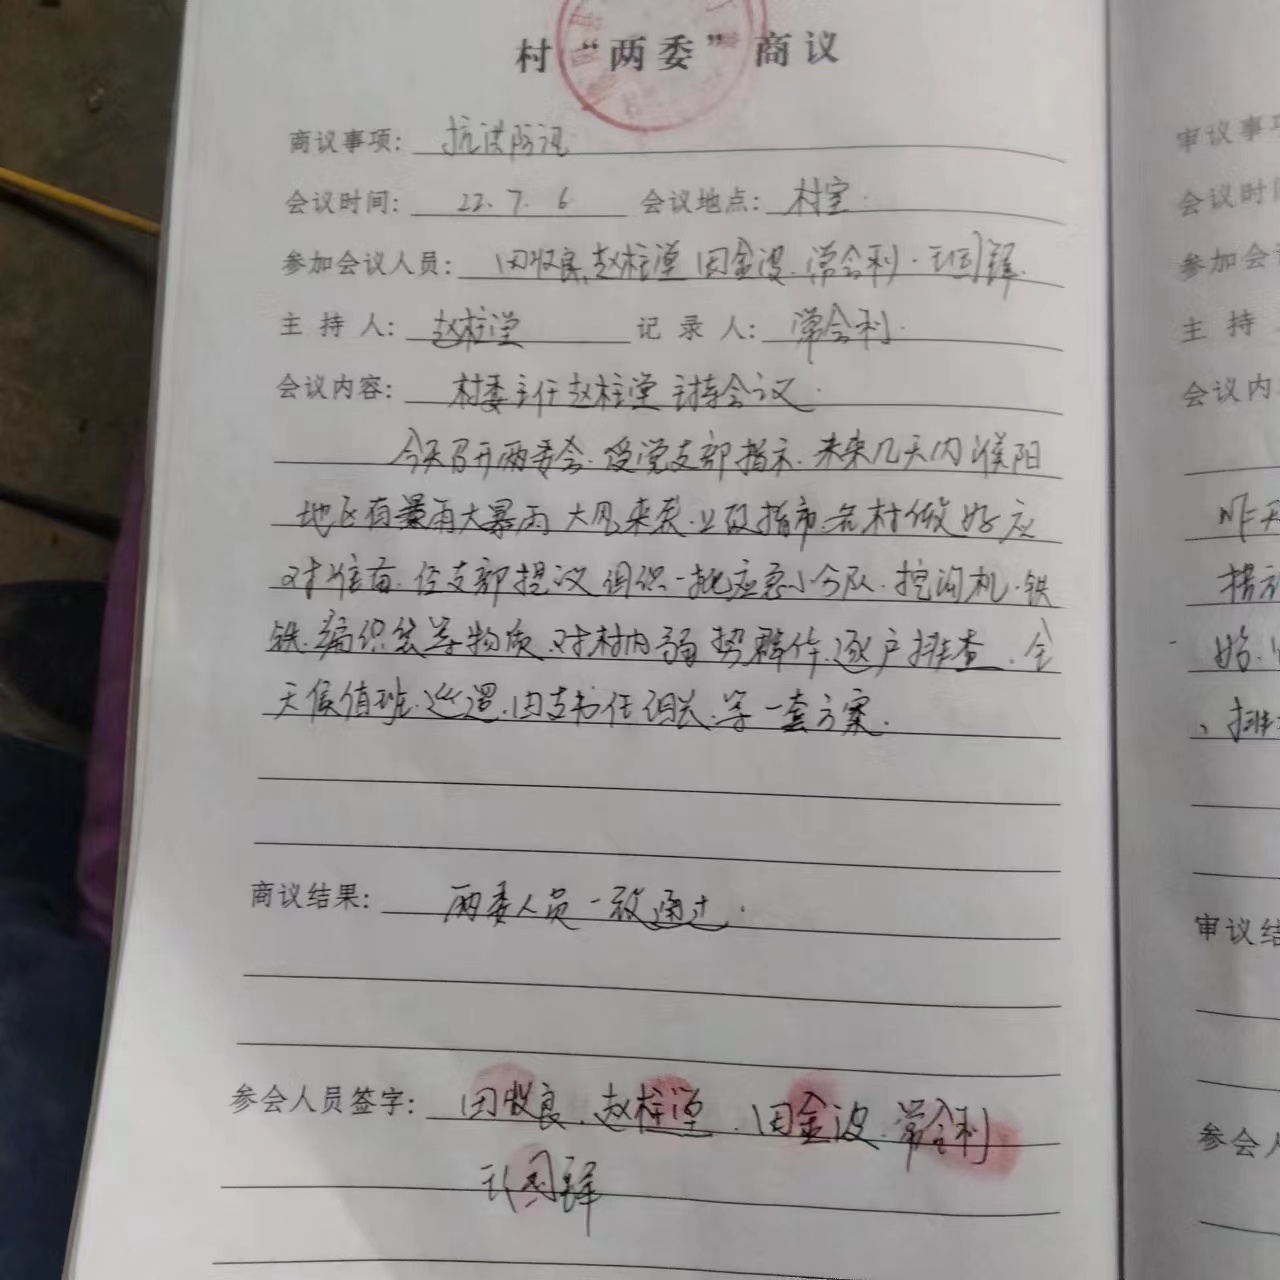 村“两委”商议
商议事项： 抗洪防汛
会议时间： 22.7.6 会议地点： 村室.
参加会议人员： 田收良.赵柱堂 田金波.常会利.国锋.
主 持 人： 赵柱堂 记 录 人： 常会利.
会议内容： 村委主任赵柱堂主持会议.
今天召开两委会.受党支部指示.未来几天内濮阳
地区有暴雨大暴雨 大风来袭.上级指示.各村做好应
对准备.经支部提议 组织一批应急小分队.挖沟机.铁
铁.编织袋等物质.对村内弱势群体.逐户排查.全
天候值班.巡逻.由支书任组长.等一套方案.
商议结果： 两委人员一致通过.
参会人员签字： 田收良.赵柱堂.田金波.常会利
国锋
审议事项
会议时间
参加会议
主 持
会议内
昨天
始.
、排
审议结
参会人